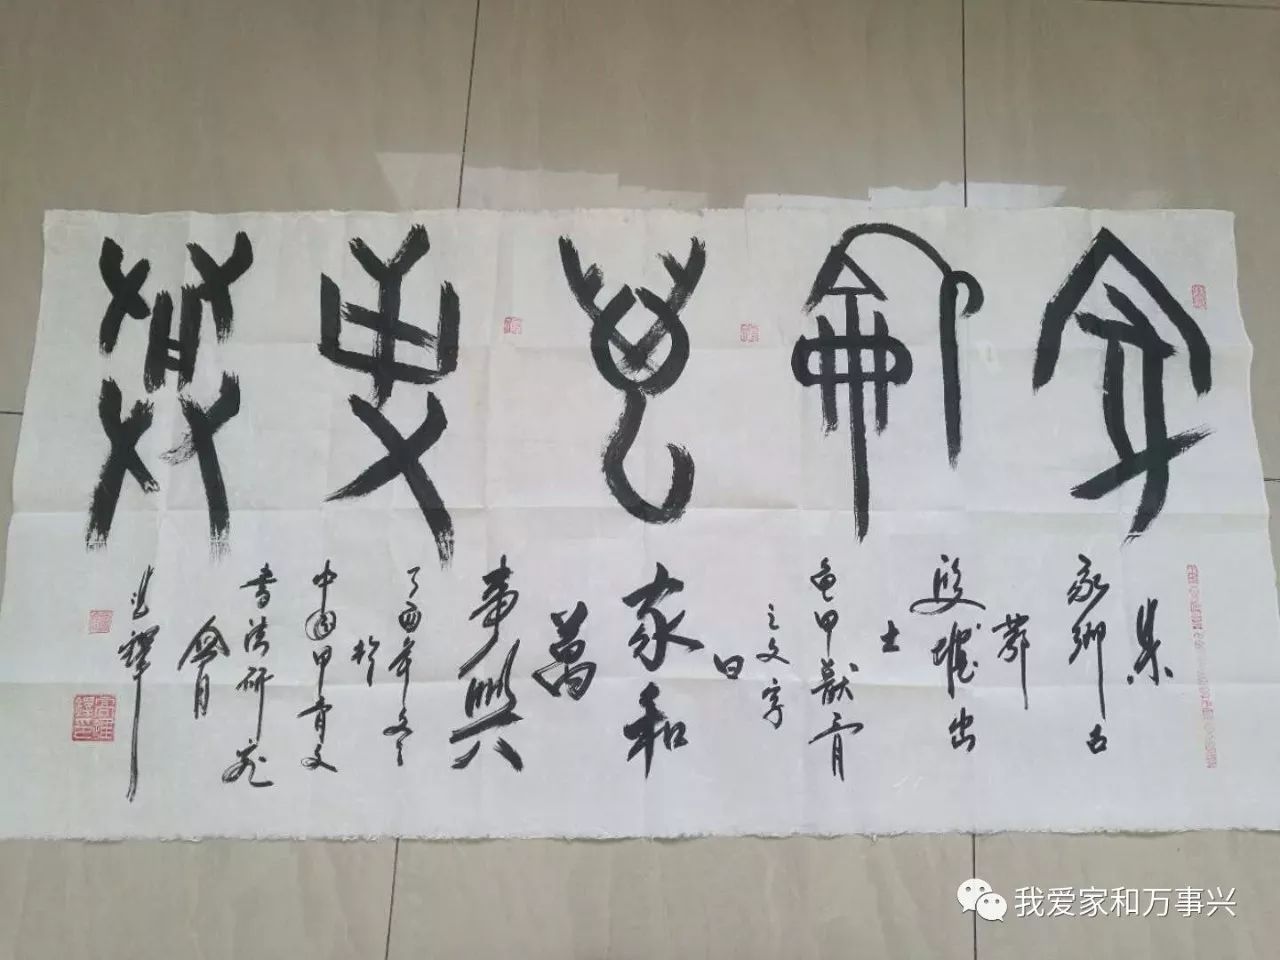 家和萬事興
集
家鄉古
鄴
殷墟出
土
龜甲獸骨
之文字
曰
家和
萬
事興
丁酉年
於
中國甲骨文
書法研究
會
我爱家和万事兴